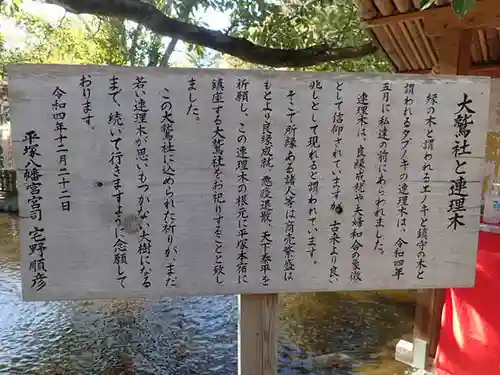 大鷲社と連理木
縁の木と謂われるエノキと鎮守の木と
謂われるタブノキの連理木は、令和四年
五月に私達の前にあらわれました。
連理木は、良縁成就や夫婦和合の象徴
として信仰されていますが、古来より良い
兆しとして現れると謂われています。
そこで所縁ある諸人等は商売繁盛は
もとより良縁成就、悪疫退散、天下泰平を
祈願し、この連理木の根元に平塚本宿に
鎮座する大鷲社をお祀りすることと致し
ました。
この大鷲社に込められた祈りが、まだ
若い連理木が思いもつかない大樹になる
まで、続いて行きますように念願して
おります。
令和四年十二月二十二日
平塚八幡宮宮司　宅野順彦